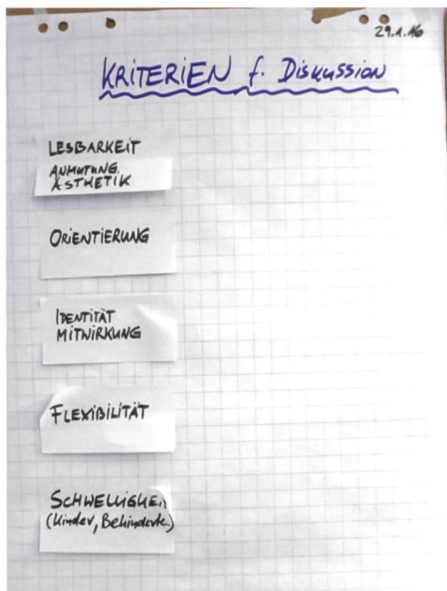 29.1.16
KRITERIEN f. Diskussion
LESBARKEIT
ANMUTUNG
ÄSTHETIK
ORIENTIERUNG
IDENTITÄT
MITWIRKUNG
FLEXIBILITÄT
SCHWELLIGKEIT
(Kinder, Behinderte)